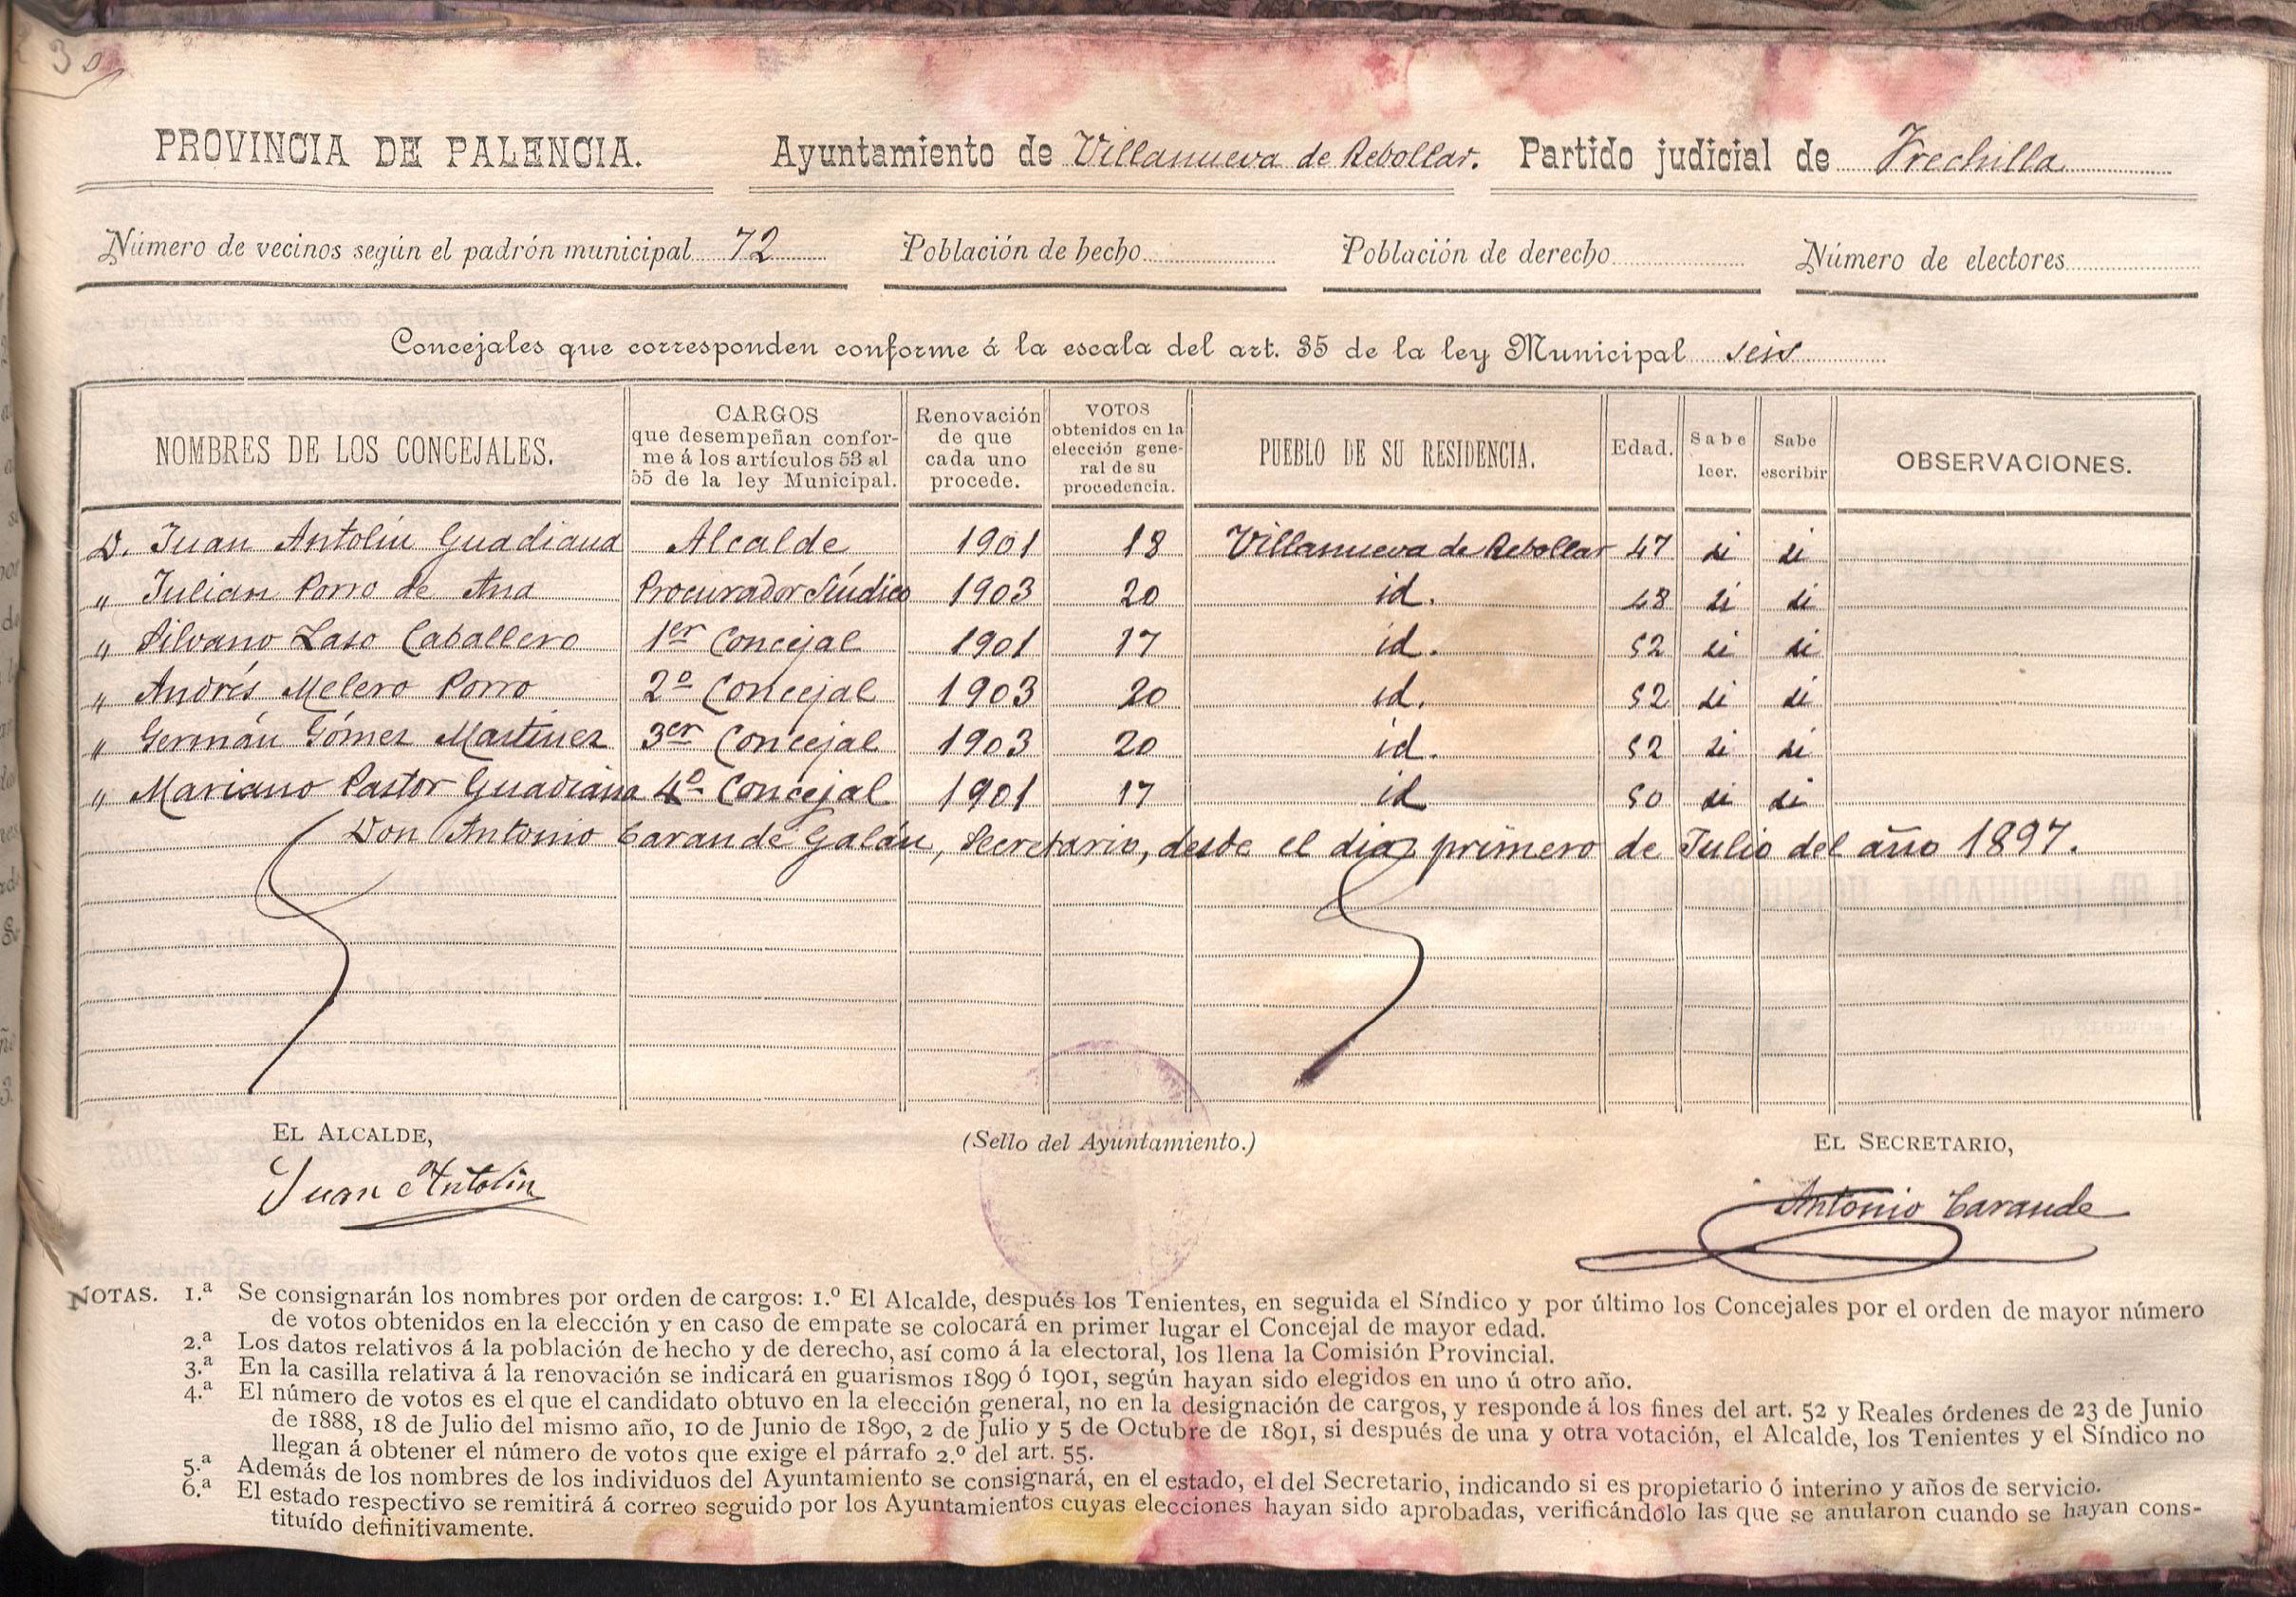 30
PROVINCIA DE PALENCIA. Ayuntamiento de Villanueva de Rebollar. Partido judicial de Frechilla
Número de vecinos según el padrón municipal 72 Población de hecho Población de derecho Número de electores
Concejales que corresponden conforme á la escala del art. 35 de la ley Municipal seis
NOMBRES DE LOS CONCEJALES. CARGOS que desempeñan conforme á los artículos 53 al 55 de la ley Municipal. Renovación de que cada uno procede. VOTOS obtenidos en la elección general de su procedencia. PUEBLO DE SU RESIDENCIA. Edad. Sabe leer. Sabe escribir OBSERVACIONES.
D. Juan Antolín Guadiana Alcalde 1901 18 Villanueva de Rebollar 47 si si
" Julian Porro de Ana Procurador Síndico 1903 20 id. 48 si si
" Silvano Laso Caballero 1er Concejal 1901 17 id. 52 si si
" Andrés Melero Porro 2º Concejal 1903 20 id. 52 si si
" Germán Gómez Martínez 3er Concejal 1903 20 id. 52 si si
" Mariano Pastor Guadiana 4º Concejal 1901 17 id 50 si si
Don Antonio Carande Galán, Secretario, desde el dia primero de Julio del año 1897.
EL ALCALDE, (Sello del Ayuntamiento.) EL SECRETARIO,
Juan Antolin Antonio Carande
NOTAS. 1.ª Se consignarán los nombres por orden de cargos: 1.º El Alcalde, después los Tenientes, en seguida el Síndico y por último los Concejales por el orden de mayor número
de votos obtenidos en la elección y en caso de empate se colocará en primer lugar el Concejal de mayor edad.
2.ª Los datos relativos á la población de hecho y de derecho, así como á la electoral, los llena la Comisión Provincial.
3.ª En la casilla relativa á la renovación se indicará en guarismos 1899 ó 1901, según hayan sido elegidos en uno ú otro año.
4.ª El número de votos es el que el candidato obtuvo en la elección general, no en la designación de cargos, y responde á los fines del art. 52 y Reales órdenes de 23 de Junio
de 1888, 18 de Julio del mismo año, 10 de Junio de 1890, 2 de Julio y 5 de Octubre de 1891, si después de una y otra votación, el Alcalde, los Tenientes y el Síndico no
llegan á obtener el número de votos que exige el párrafo 2.º del art. 55.
5.ª Además de los nombres de los individuos del Ayuntamiento se consignará, en el estado, el del Secretario, indicando si es propietario ó interino y años de servicio.
6.ª El estado respectivo se remitirá á correo seguido por los Ayuntamientos cuyas elecciones hayan sido aprobadas, verificándolo las que se anularon cuando se hayan cons-
tituído definitivamente.